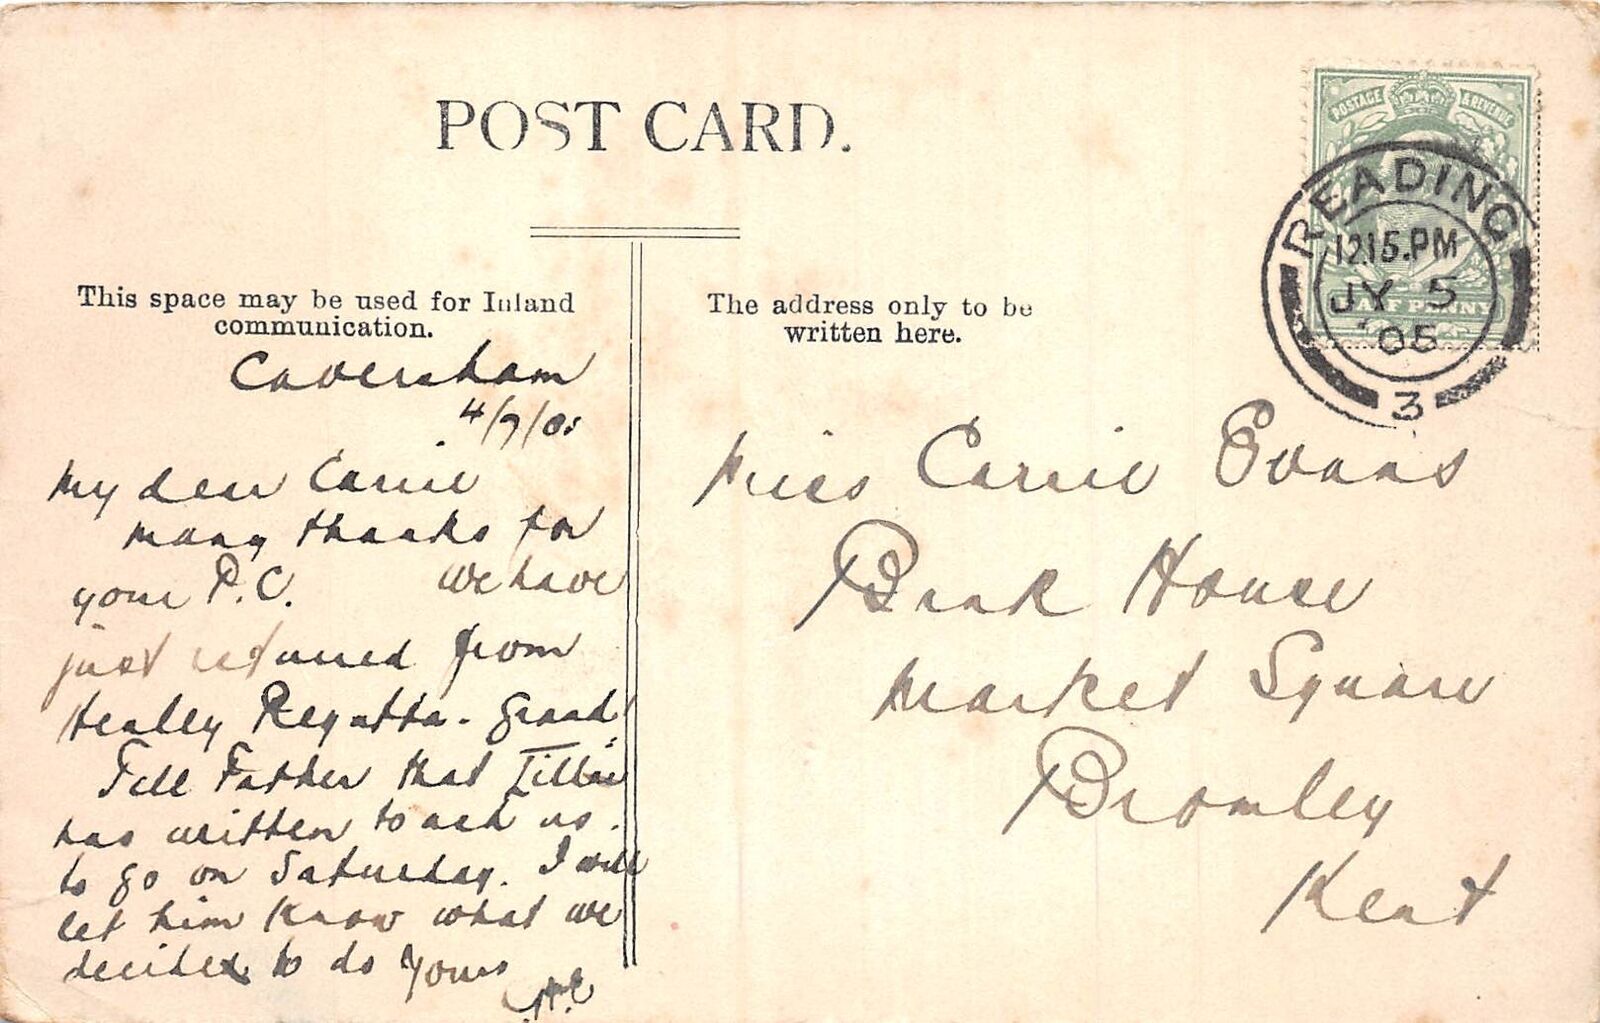 POST CARD.
POSTAGE & REVENUE
HALF PENNY
READING
12.15.PM
JY 5
05
3
This space may be used for Inland
communication.
The address only to be
written here.
Caversham
4/7/05
My dear Carrie
Many thanks for
your P.C. We have
just returned from
Henley Regatta - Grand
Tell Father that Tillie
has written to ask us
to go on Saturday. I will
let him know what we
decided to do Yours
Miss Carrie Evans
Bank House
Market Square
Bromley
Kent